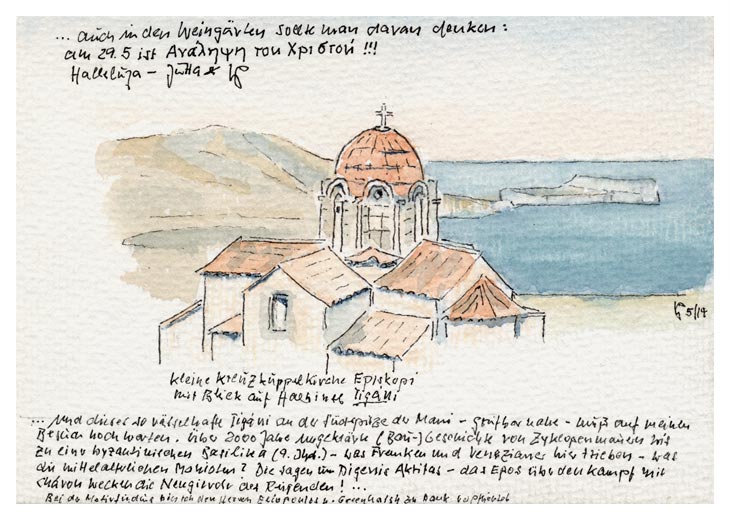 ... auch in den Weingärten sollte man daran denken:
am 29.5 ist Ανάληψη του Χριστού !!!
Halleluja - Jutta &
5/14
kleine Kreuzkuppelkirche Episkopi
mit Blick auf Halbinsel Tigáni
... und dieses so rätselhafte Tigáni an der Südspitze der Mani - greifbar nahe - muß auf meinen
Besuch noch warten. Über 2000 Jahre ungeklärte (Bau-)Geschichte von Zyklopenmauern bis
zu einer byzantinischen Basilika (9. Jhd.) - was Franken und Venezianer hier trieben - was
die mittelalterlichen Manioten? Die Sagen um Digenis Akritas - das Epos über den Kampf mit
Cháron wecken die Neugierde des Reisenden! ...
Bei der Motivfindung bin ich den Herren & Greenhalgh zu Dank verpflichtet